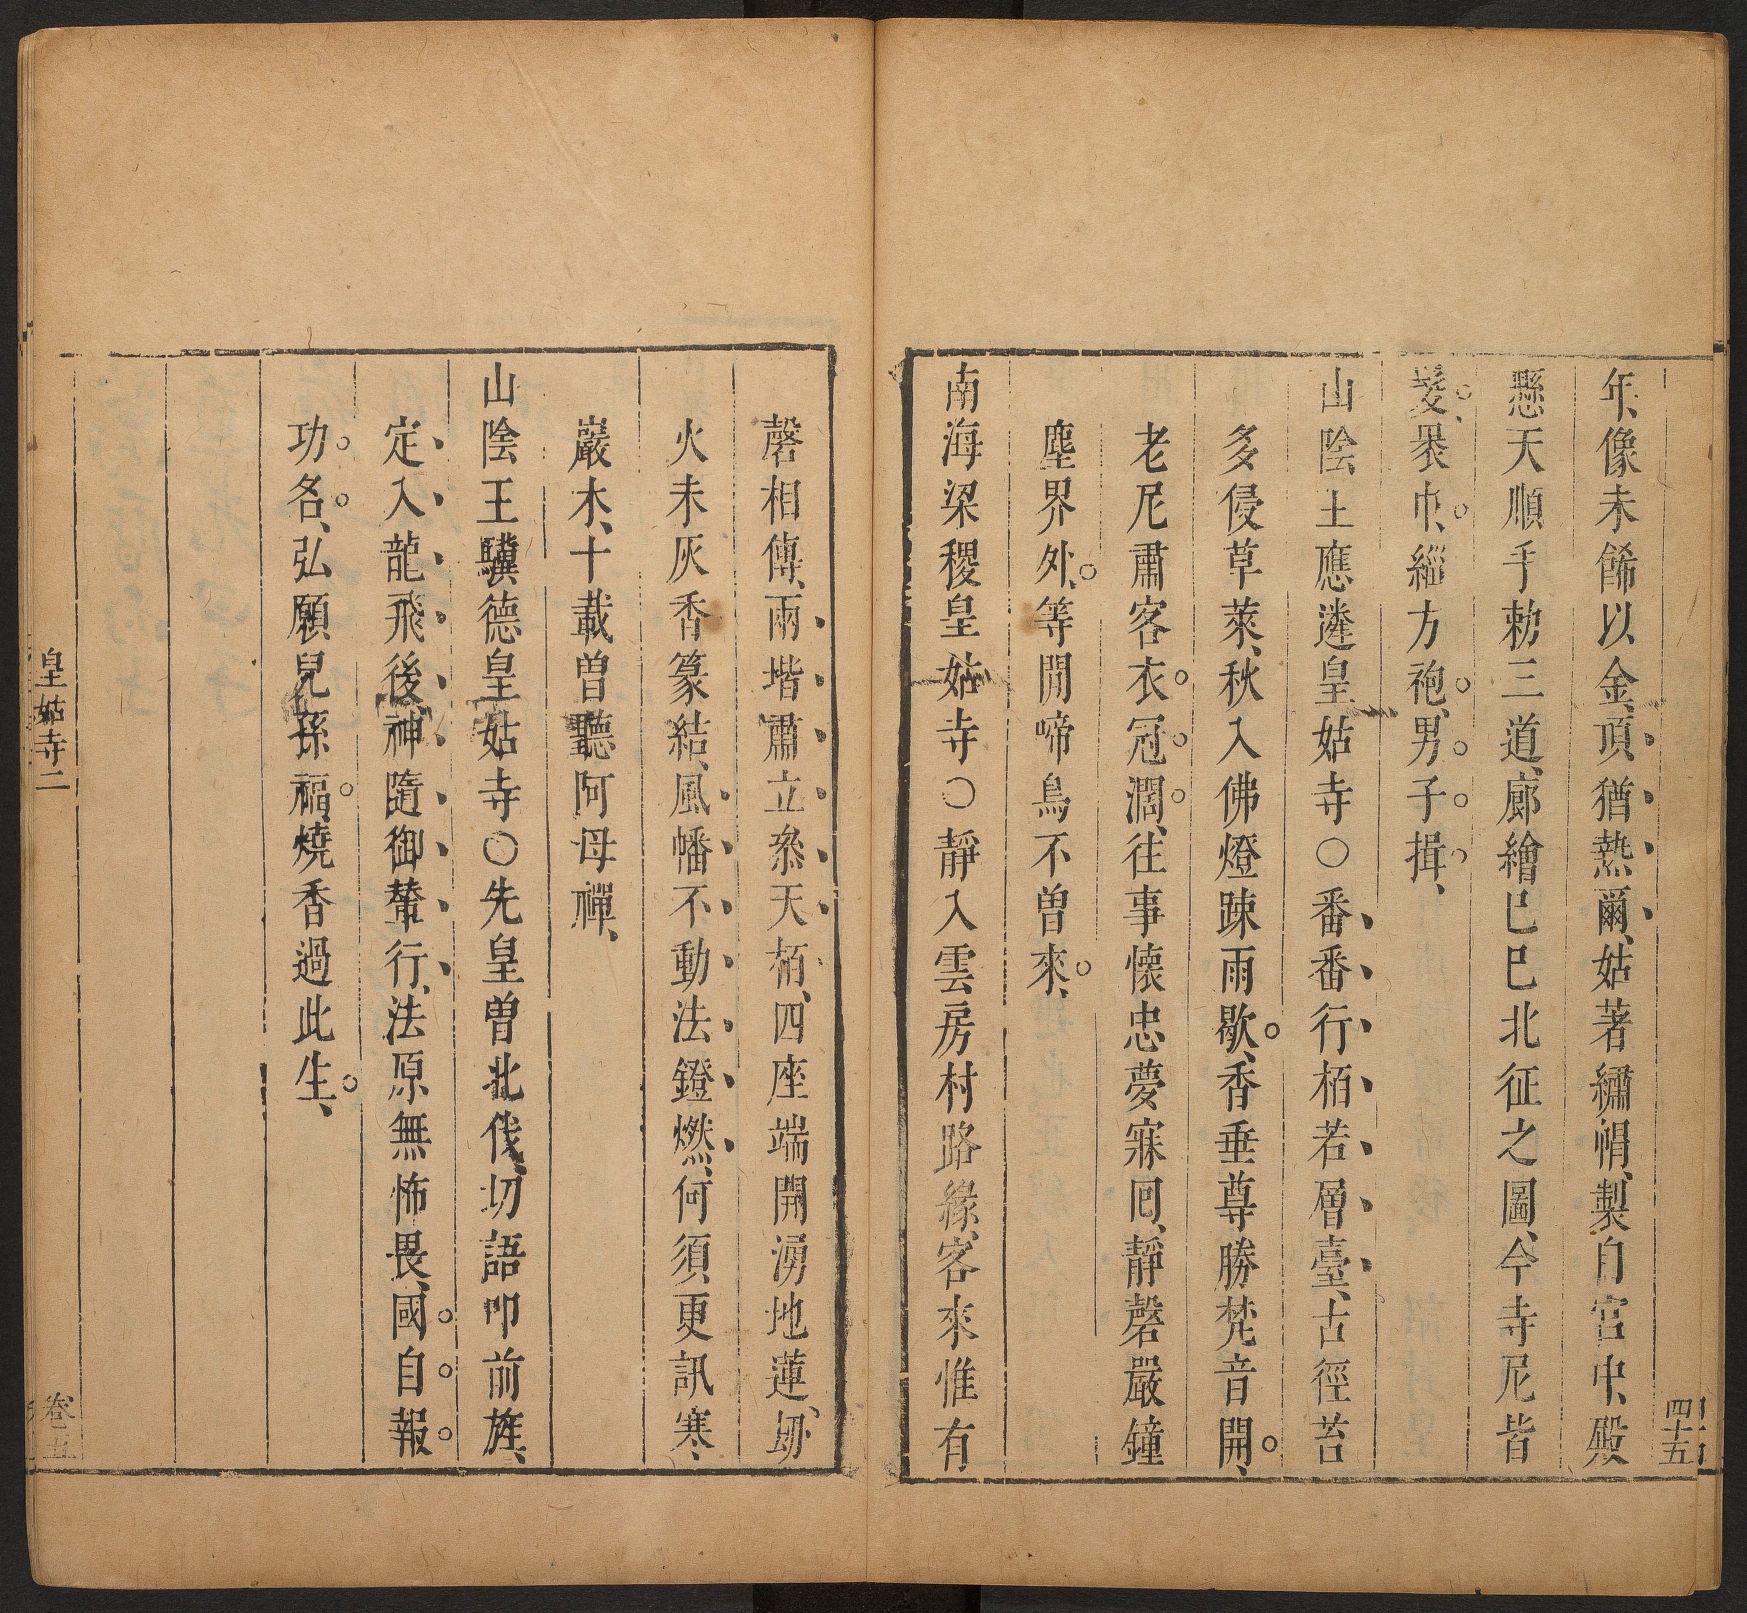 四十五
年、像未餙以金、頂猶熱爾、姑著繡㡌、製自宮中、殿
懸天順手勅三道、廊繪巳巳北征之圖、今寺尼皆
髮、裹巾、緇方袍、男子揖、
山陰王應遴皇姑寺○番番行栢若層臺、古徑苔
多侵草萊、秋入佛燈踈雨歇、香垂尊勝梵音開、
老尼肅客衣冠濶、往事懷忠夢寐囘、靜磬嚴鐘
塵界外、等閒啼鳥不曾來、
南海梁稷皇姑寺○靜入雲房村路緣、客來惟有
磬相傳、兩堦肅立叅天栢、四座端開湧地蓮、刼
火未灰香篆結、風幡不動法鐙燃、何須更訊寒
巖木、十載曾聽阿母禪、
山陰王驥德皇姑寺○先皇曾北伐、切語叩前旌、
定入龍飛後、神隨御輦行、法原無怖畏、國自報
功名、弘願兒孫福、燒香過此生、
皇姑寺二
卷五